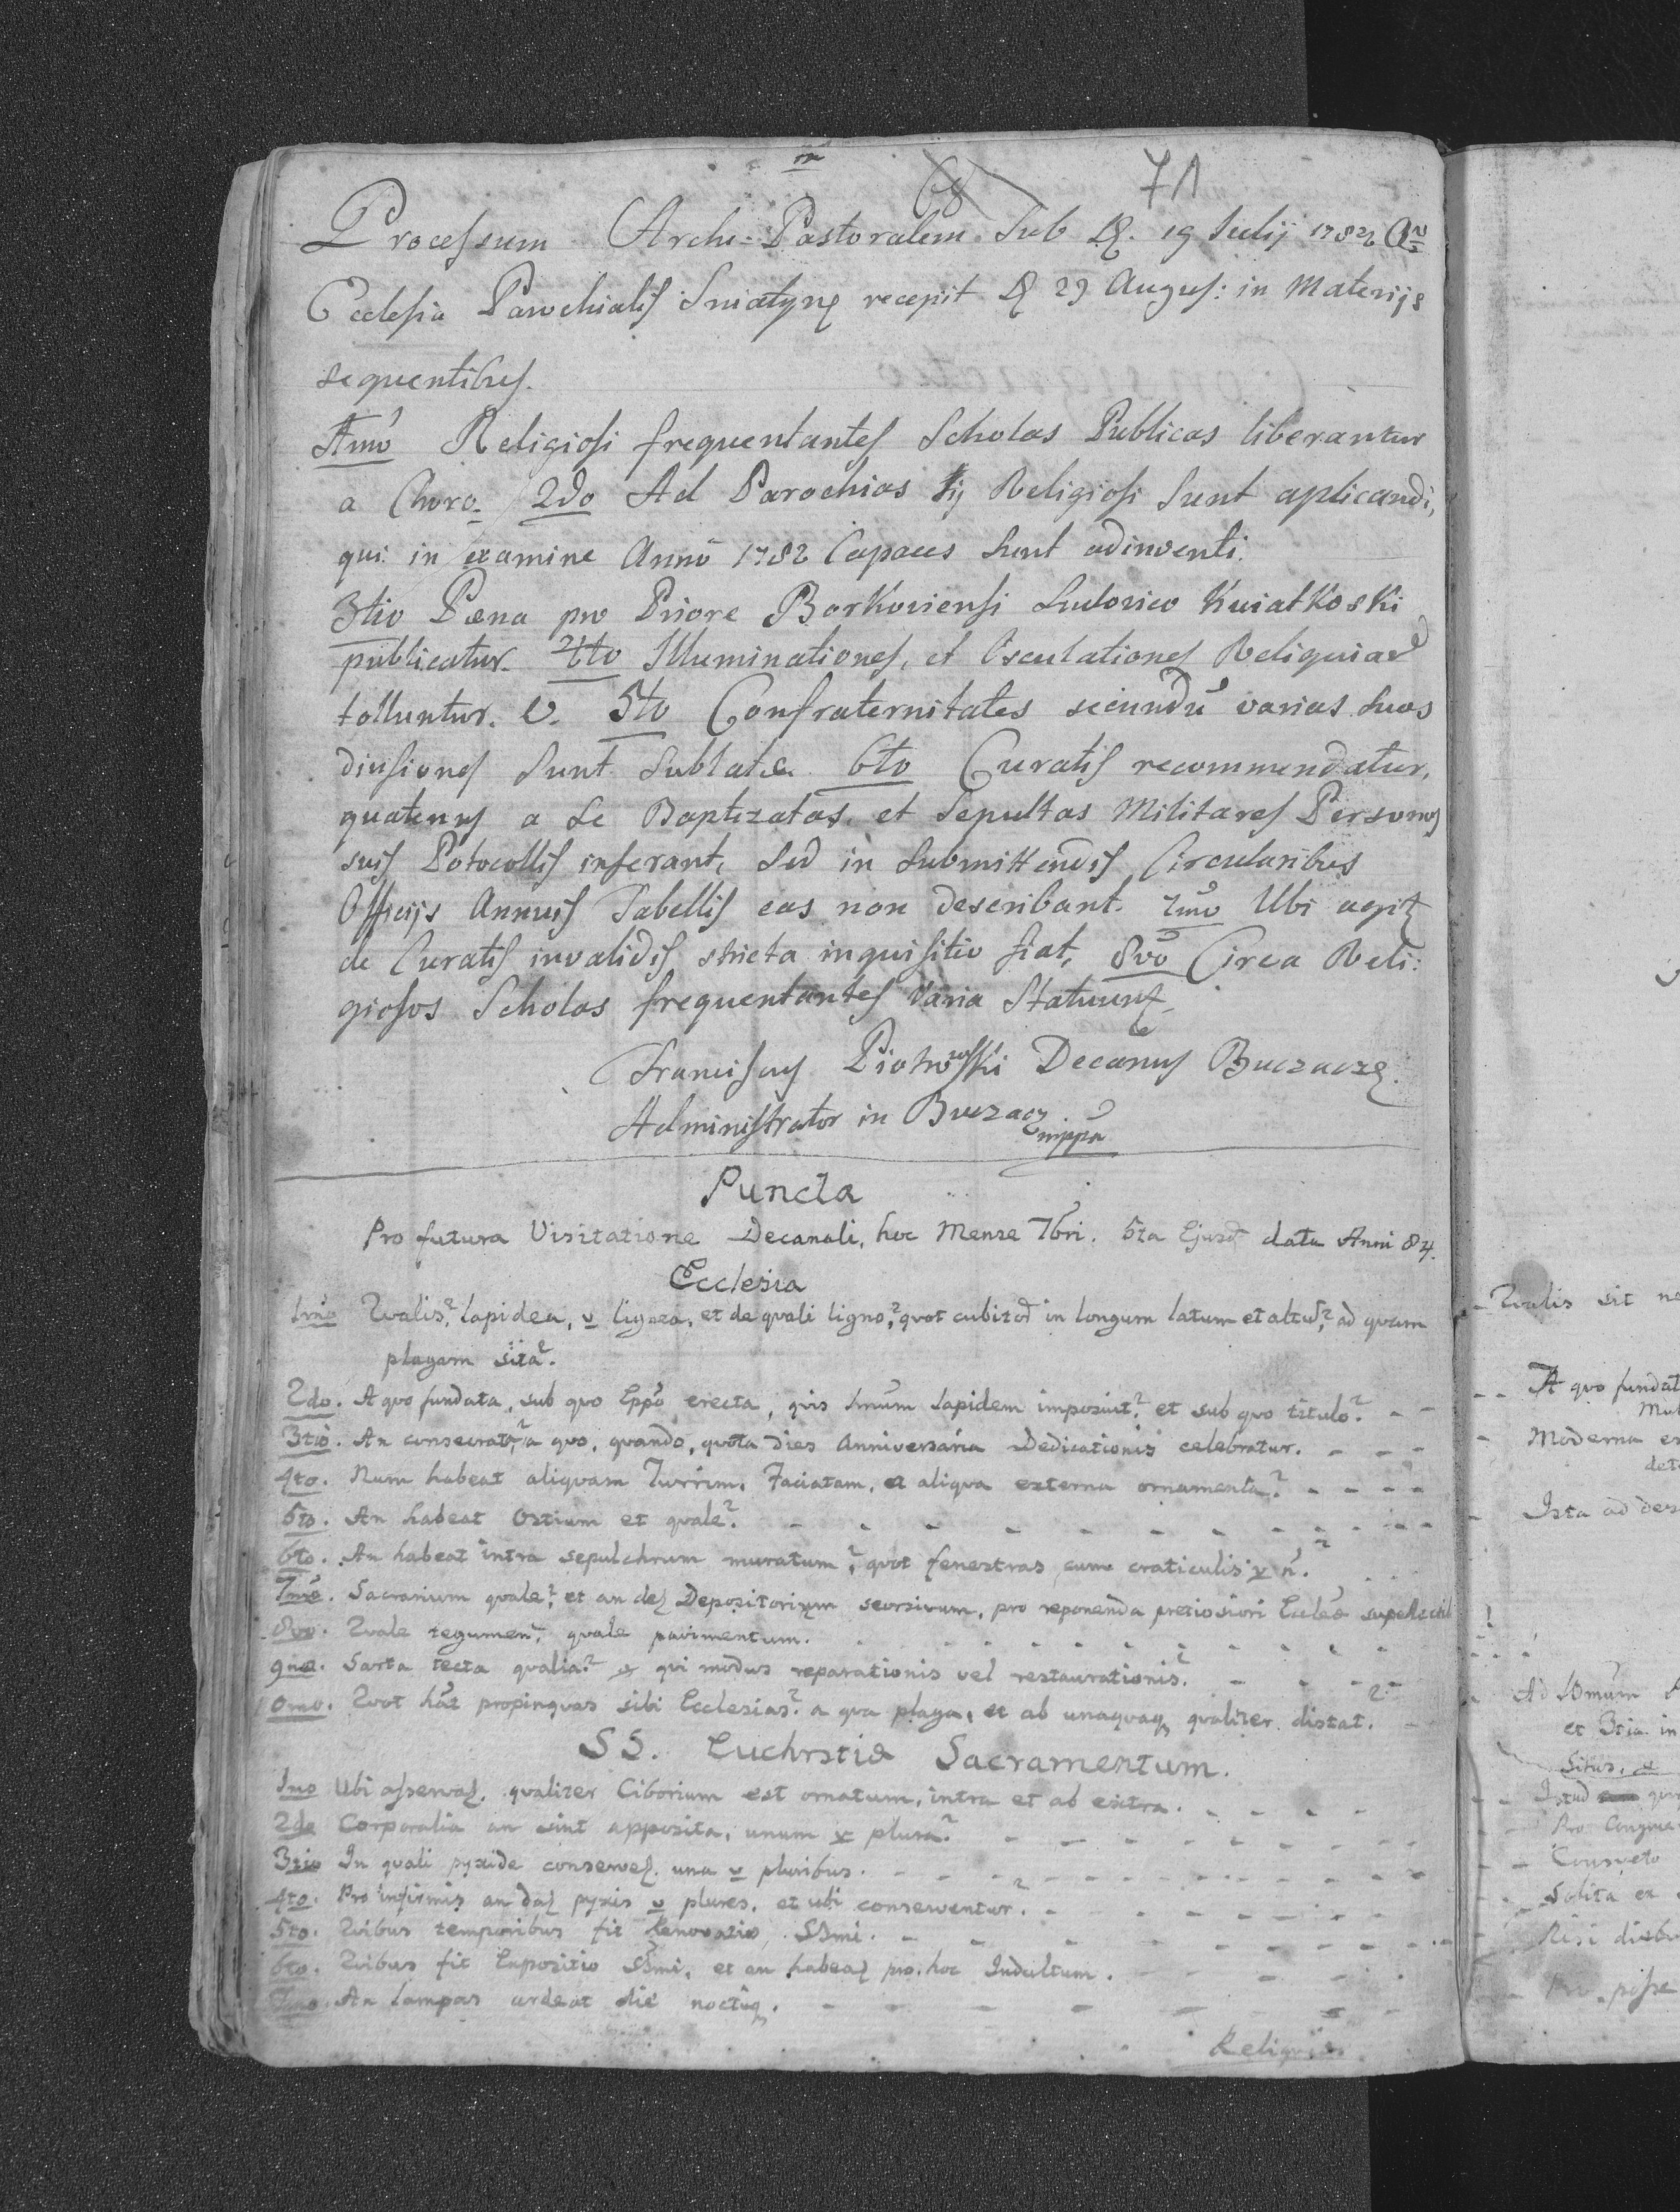 68 71
Processum Archi-Pastoralem Sub D. 19 Julij 1784
Ecclesia Parochialis Sniatyn recepit D 29 Augus: in Materijs
sequentibus.
Religiosi frequentantes Scholas Publicas liberantur
a Choro. 2do Ad Parochias ij Religiosi Sunt aplicandi,
qui in examine Anno 1782 Capaces Sunt adinventi.
3tio Pæna pro Priore Borkoviensi Ludovico Kwiatkoski
publicatur. 4to Illuminationes, et Osculationes Reliquiar
tolluntur. 5to Confraternitates secundu varias suas
divisiones Sunt Sublatæ. 6to Curatis recommendatur,
quatenus a Se Baptizatas, et Sepultas Militares Personas
suis Potocollis inserant, Sed in Submittendis Circularibus
Officijs Annuis Tabellis eas non describant. 7mo Ubi agit
de Curatis invalidis stricta inquisitio fiat, 8vo Circa Reli:
giosos Scholas frequentantes varia Statuunt.
Franciscus Piotrowski Decanus Buczacze.
Administrator in Buczacz mppa
Puncta
Pro futura Visitatione Decanali, hoc Mense 7bri. 5ta Ejusd data Anni 84.
Ecclesia
1mo Qvalis? lapidea, v lignea, et de qvali ligno? qvot cubitor in longum latum et altu? ad qvam
plagam sita?
2do. A qvo fundata, sub qvo Eppo erecta, qvis 1mum lapidem imposuit? et sub qvo titulo? - -
3tio. An consecrata? a qvo, qvando, qvota dies Anniversaria Dedicationis celebratur. - - -
4to. Num habeat aliqvam Turrim, Faciatam, et aliqva externa ornamenta? - - - -
5to. An habeat Ostium et qvale? - - - - - - - - - -
6to. An habeat intra sepulchrum muratum? qvot fenestras cum craticulis v n?
7mo. Sacrarium qvale? et an det Depositorium seorsivum, pro reponenda pretiosiori Ecclæ supellectil
8vo. Qvale tegumen? qvale pavimentum. - - - - - - -
9no. Sarta tecta qvalia? et qvi modus reparationis vel restaurationis? - - - -
10mo. Qvot hat propinqvas sibi Ecclesias? a qva plaga, et ab unaqvaq qvaliter distat? -
SS. Euchrstiæ Sacramentum.
1mo Ubi asservat. qvaliter Ciborium est ornatum, intra et ab extra. - - - -
2do Corporalia an sint apposita, unum v plura? - - - - - - -
3tio In qvali pyxide conservet. una v pluribus. - - - - - - - -
4to. Pro infirmis an dat pyxis v plures, et ubi conserventur? - - - - - -
5to. Qvibus temporibus fit Renovatio SSmi. - - - - - - -
6to. Qvibus fit Expositio SSmi, et an habeat pro hoc Indultum. - - - -
7mo. An lampas ardeat die noctuq. - - - - - - -
Reliqviæ
Qvalis sit
A qvo fundat
Moderna
Ista ad
Ad 10mum
et 3tia in
Situs,
Istud
Pro
Consveto
Solita ex
posse